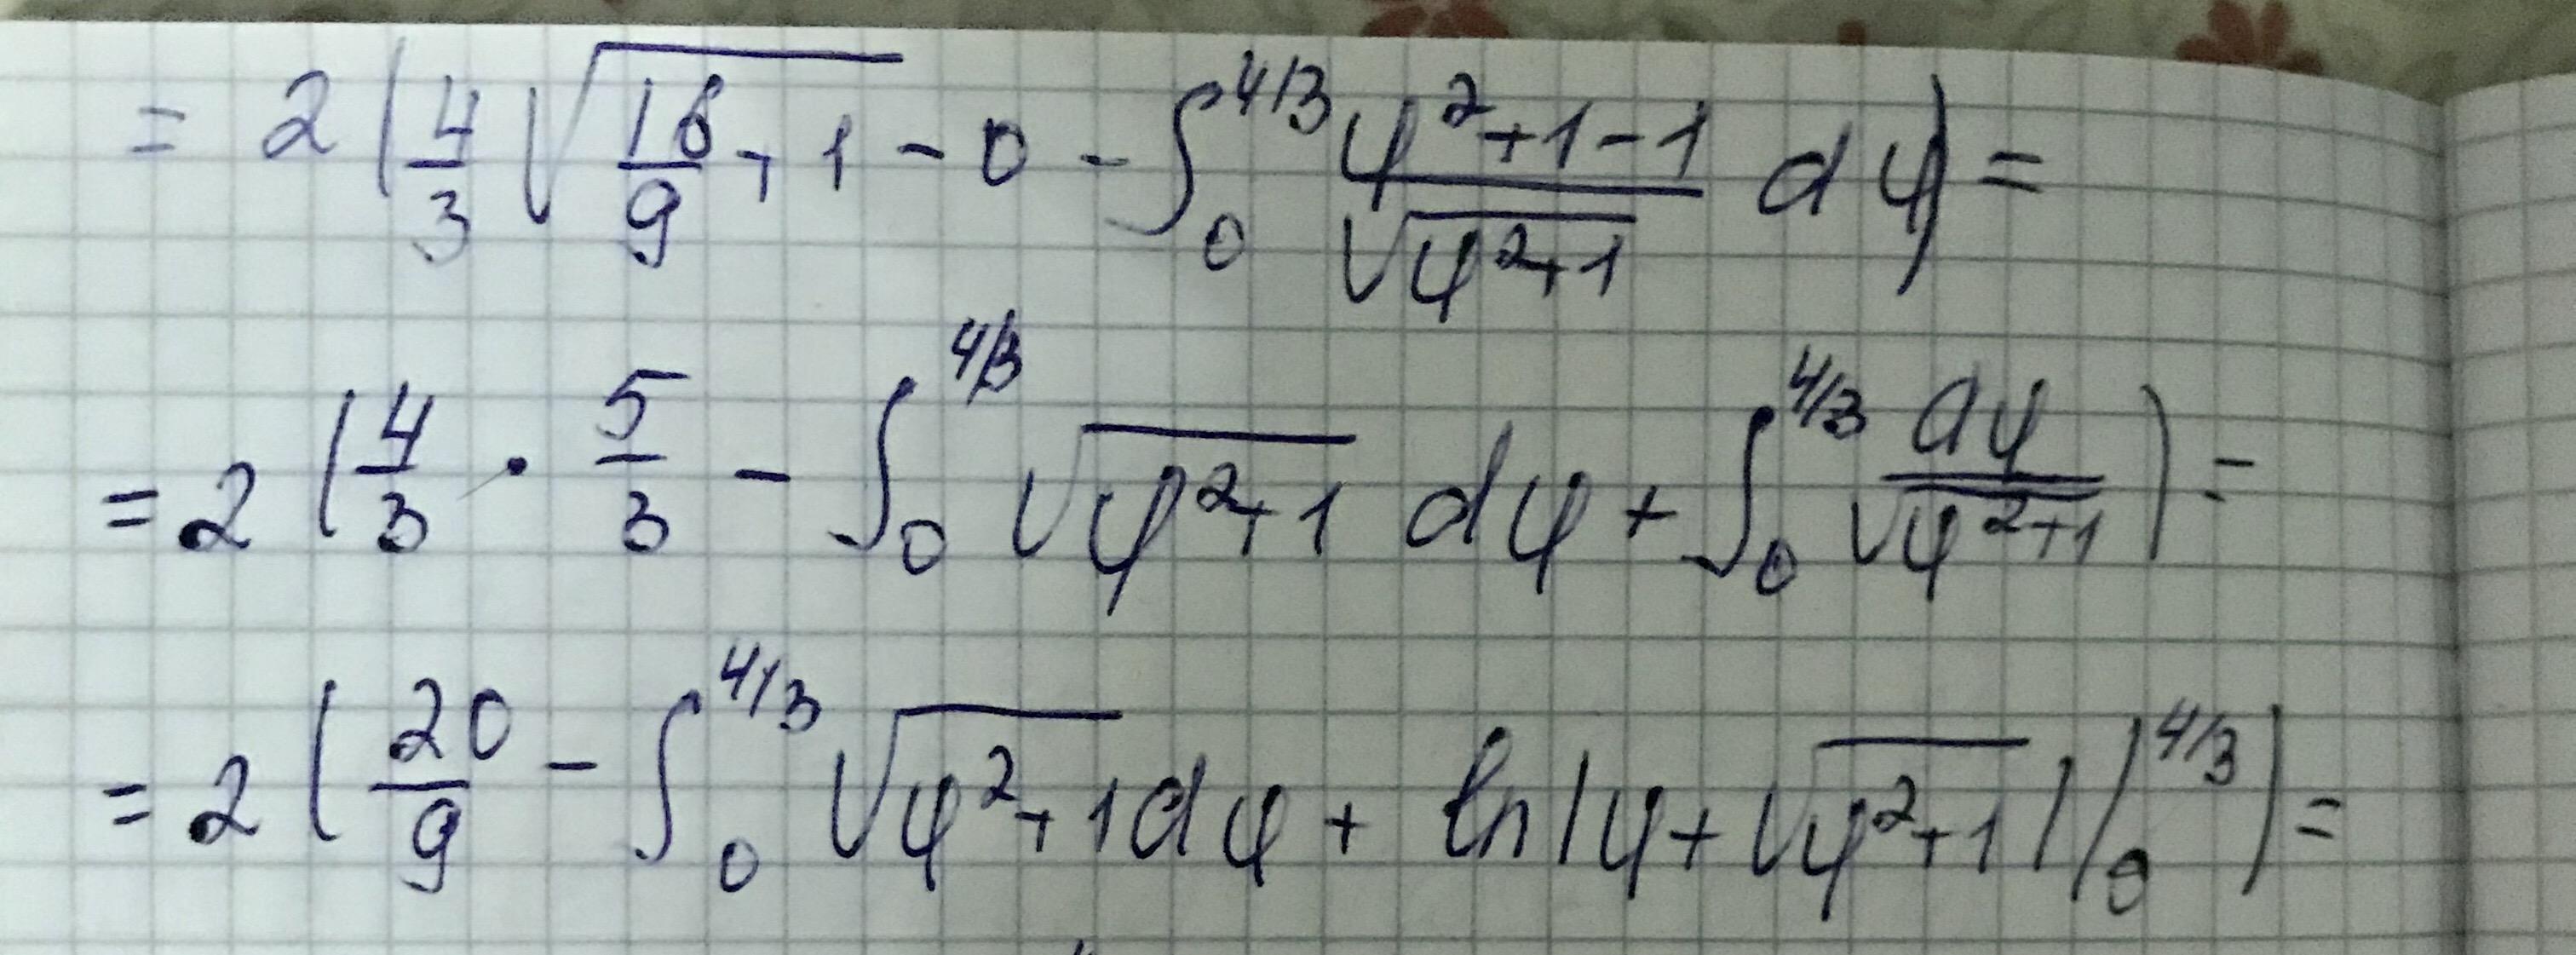 = 2 ( 4/3 √(16/9 + 1) - 0 - ∫₀^{4/3} (φ² + 1 - 1)/√(φ² + 1) dφ ) =
= 2 ( 4/3 · 5/3 - ∫₀^{4/3} √(φ² + 1) dφ + ∫₀^{4/3} dφ/√(φ² + 1) ) =
= 2 ( 20/9 - ∫₀^{4/3} √(φ² + 1) dφ + ln|φ + √(φ² + 1)| |₀^{4/3} ) =